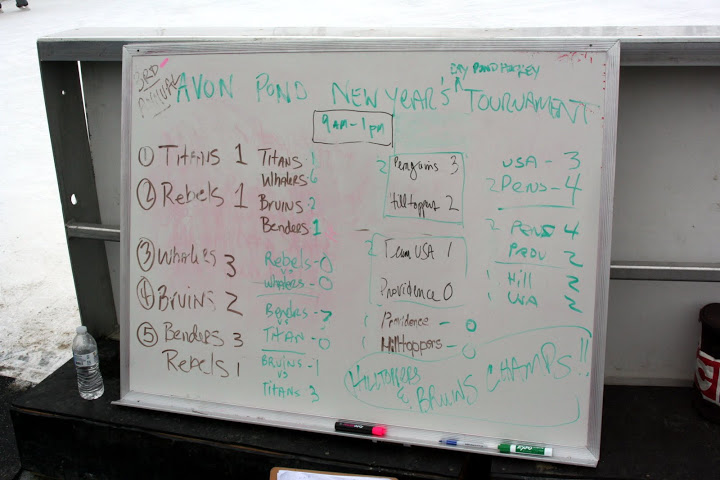 3RD
ANNUAL
DAY POND HOCKEY
AVON POND NEW YEAR'S ^ TOURNAMENT
9AM - 1PM
① TITANS 1
② Rebels 1
③ WHALERS 3
④ BRUINS 2
⑤ Benders 3
Rebels 1
TITANS 1
WHALERS 6
BRUINS 2
Benders 1
Rebels - 0
vs
WHALERS - 0
Benders - 2
TITAN - 0
BRUINS - 1
vs
TITANS 3
2 Penguins 3
Hilltoppers 2
2 Team USA 1
Providence 0
Providence - 0
Hilltoppers - 0
USA - 3
2 PENS - 4
2 PENS 4
PROV 2
1 Hill 2
1 USA 2
HILLTOPPERS & BRUINS CHAMPS!!